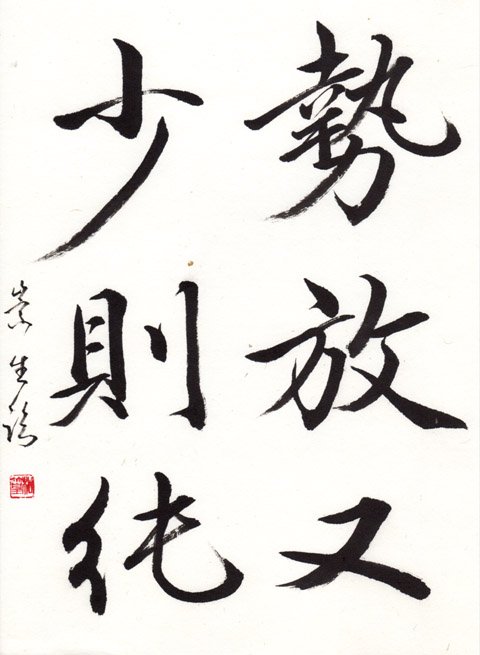 勢放又
少則純
崇生臨